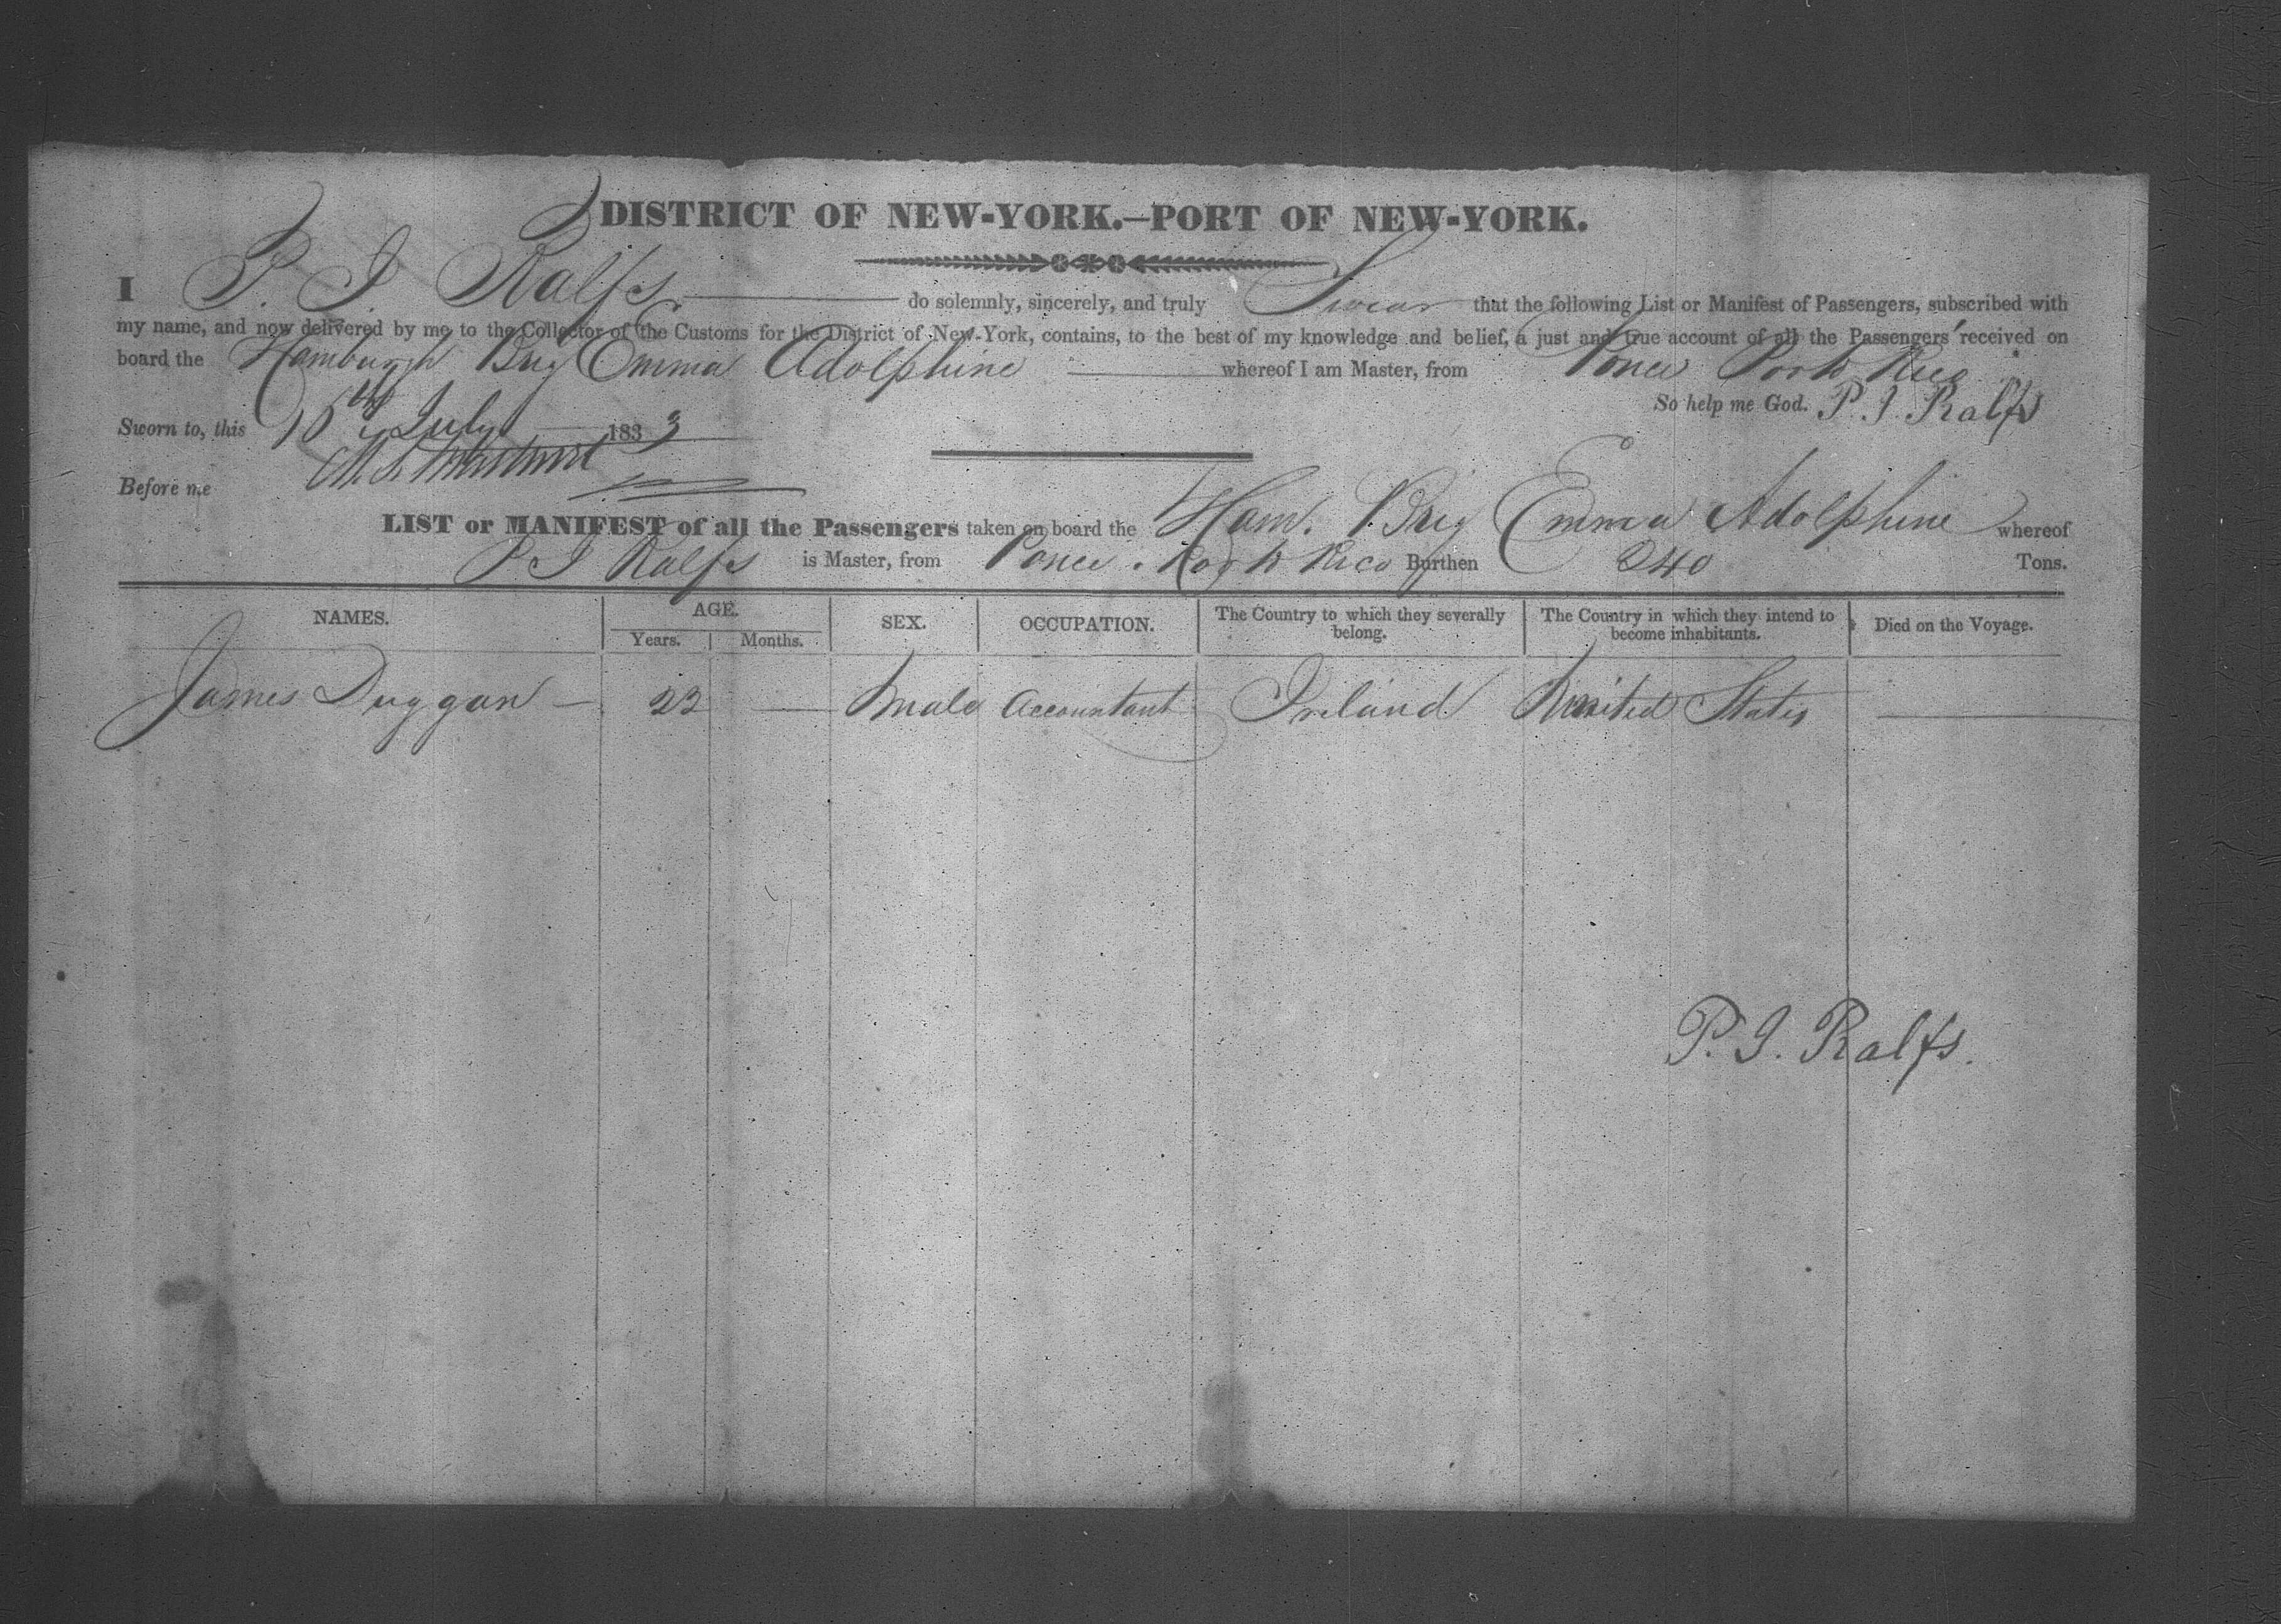 DISTRICT OF NEW-YORK.—PORT OF NEW-YORK.
I P. J. Ralfs. do solemnly, sincerely, and truly Swear that the following List or Manifest of Passengers, subscribed with
my name, and now delivered by me to the Collector of the Customs for the District of New-York, contains, to the best of my knowledge and belief, a just and true account of all the Passengers received on
board the Hamburgh Brig Emma Adolphine whereof I am Master, from Ponce Porto Rico
So help me God. P. J. Ralfs
Sworn to, this July 1833
Before me
LIST or MANIFEST of all the Passengers taken on board the Ham. Brig Emma Adolphine whereof
P J Ralfs is Master, from Ponce. Porto Rico Burthen 240 Tons.
NAMES. AGE. SEX. OCCUPATION. The Country to which they severally belong. The Country in which they intend to become inhabitants. Died on the Voyage.
Years. Months.
James Duggan — 23 — Male Accountant Ireland United States —
P. J. Ralfs.